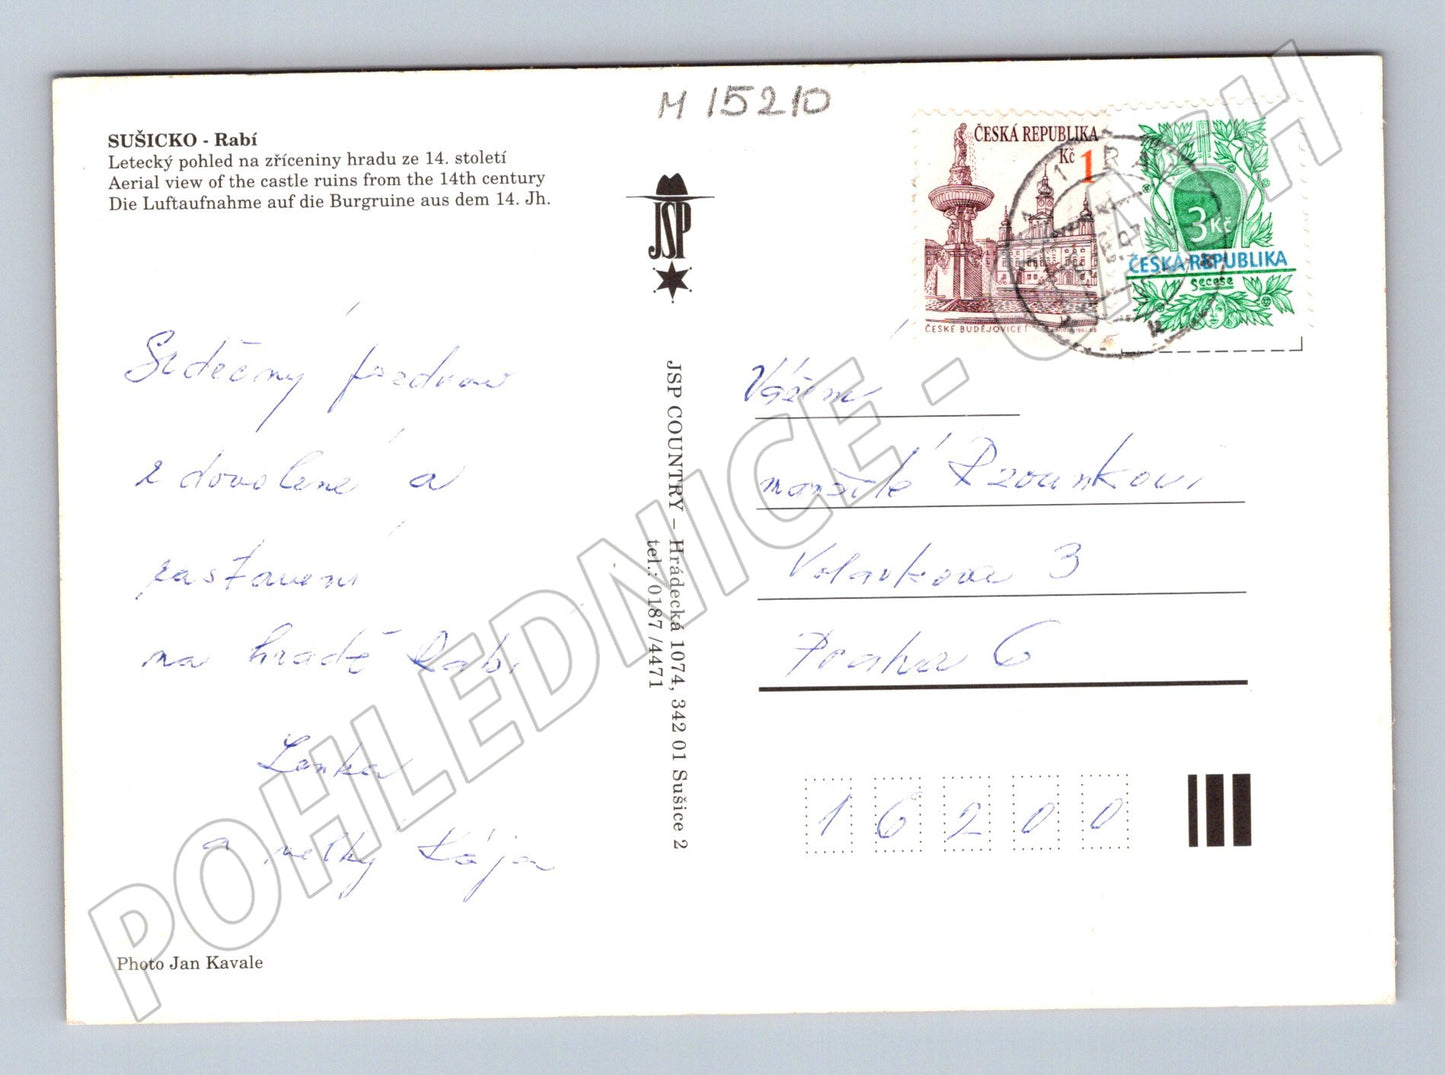 M 15210
SUŠICKO - Rabí
Letecký pohled na zříceniny hradu ze 14. století
Aerial view of the castle ruins from the 14th century
Die Luftaufnahme auf die Burgruine aus dem 14. Jh.
JSP
ČESKÁ REPUBLIKA
Kč 1
ČESKÉ BUDĚJOVICE
3 Kč
ČESKÁ REPUBLIKA
Secese
Srdečný pozdrav
z dovolené a
zastavení
na hradě Rabí
Lenka
a velký Kája
Photo Jan Kavale
JSP COUNTRY – Hrádecká 1074, 342 01 Sušice 2
tel.: 0187 /4471
Vážení
manželé
3
Praha 6
16200
POHLEDNICE - CZ